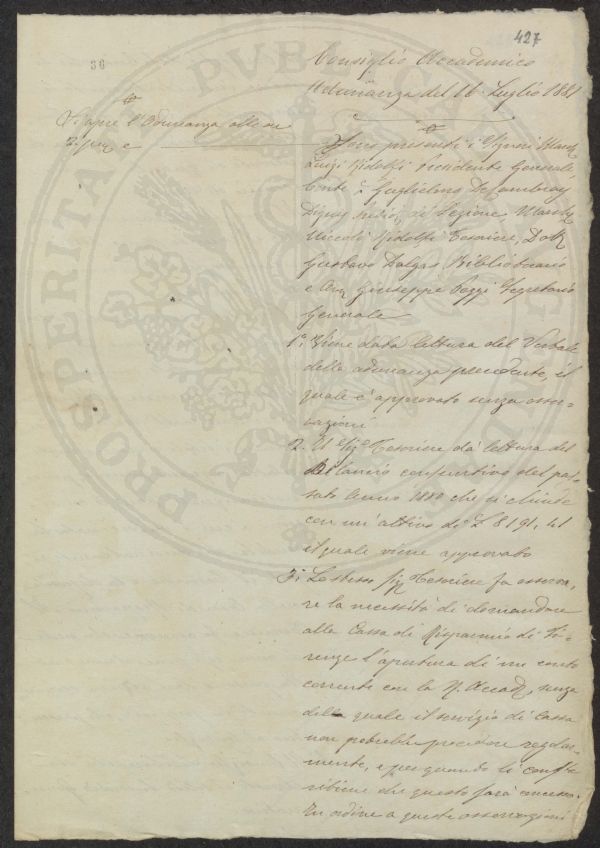 427
36
Consiglio Accademico
Adunanza del 16 Luglio 1881
Si apre l'Adunanza alle ore
Sono presenti i Signori March
Luigi Ridolfi Presidente Generale
Conte Guglielmo De Cambray
Digny di Sezione, March
Niccolò Ridolfi Tesoriere, Dott
Gustavo Dalgas Bibliotecario
e Avv Giuseppe Poggi Segretario
Generale
1º Viene data lettura del Verbale
della adunanza precedente, il
quale è approvato senza osser-
vazioni
2. Il Sig. Tesoriere dà lettura del
Bilancio consuntivo del pas-
sato Anno 1880 che si chiude
con un' attivo di £ 8191,41
il quale viene approvato
3. Lo stesso Sig Tesoriere fa osserva
re la necessità di domandare
alla Cassa di Risparmio di Fi-
renze l'apertura di un conto
corrente con la R. Accad, senza
della quale il servizio di Cassa
non potrebbe procedere regolar-
mente, e per quando li
che questo sarà concesso.
In ordine a queste osservazioni
PROSPERITATI PVBLICAE AVGENDAE